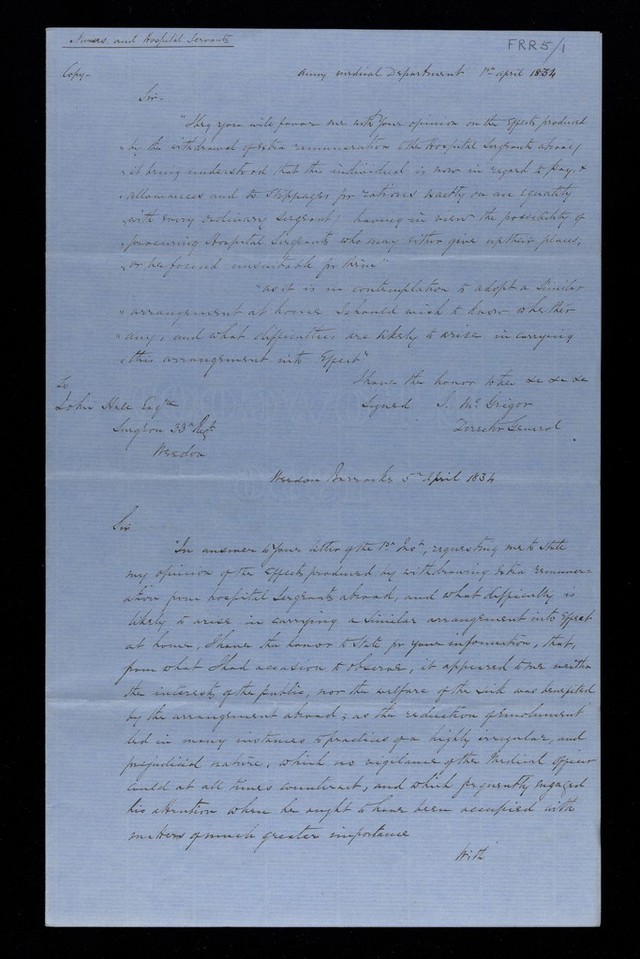 Nurses and Hospital Servants
FRR 5/1
Copy-
Army Medical Department 1st April 1834
Sir-
"I beg you will favor me with your opinion on the Effects produced
"by the withdrawal of Extra remuneration to the Hospital Sergeants abroad
"it being understood that this individual is now in regard to Pay, &
"allowances and to Stoppages for rations exactly on an equality
"with every ordinary Sergeant; having in view the possibility of
"procuring Hospital Sergeants who may either give up their places,
"or be found unsuitable for them"
"as it is in contemplation to adopt a Similar
"arrangement at home I should wish to know whether
"any, and what difficulties are likely to arise in carrying
"this arrangement into Effect"
I have the honor to be &c &c &c
To
John Hall Esqre
Signed J. McGrigor
Surgeon 33rd Regt
Director General
Weedon
Weedon Barracks 5th April 1834
Sir
"In answer to your letter of the 1st Inst, requesting me to State
my opinion of the Effects produced by withdrawing Extra remuner-
ation from hospital Sergeants abroad, and what difficulty is
likely to arise in carrying a Similar arrangement into Effect
at home, I have the honor to State for your information, that,
from what I had occasion to observe, it appeared to me neither
the interests of the public, nor the welfare of the Sick was benefited
by the arrangement abroad; as the reduction of Emolument
led in many instances to practices of a highly irregular, and
prejudicial nature, which no vigilance of the Medical Officer
could at all times counteract, and which frequently engaged
his attention when he ought to have been occupied with
matters of much greater importance
With